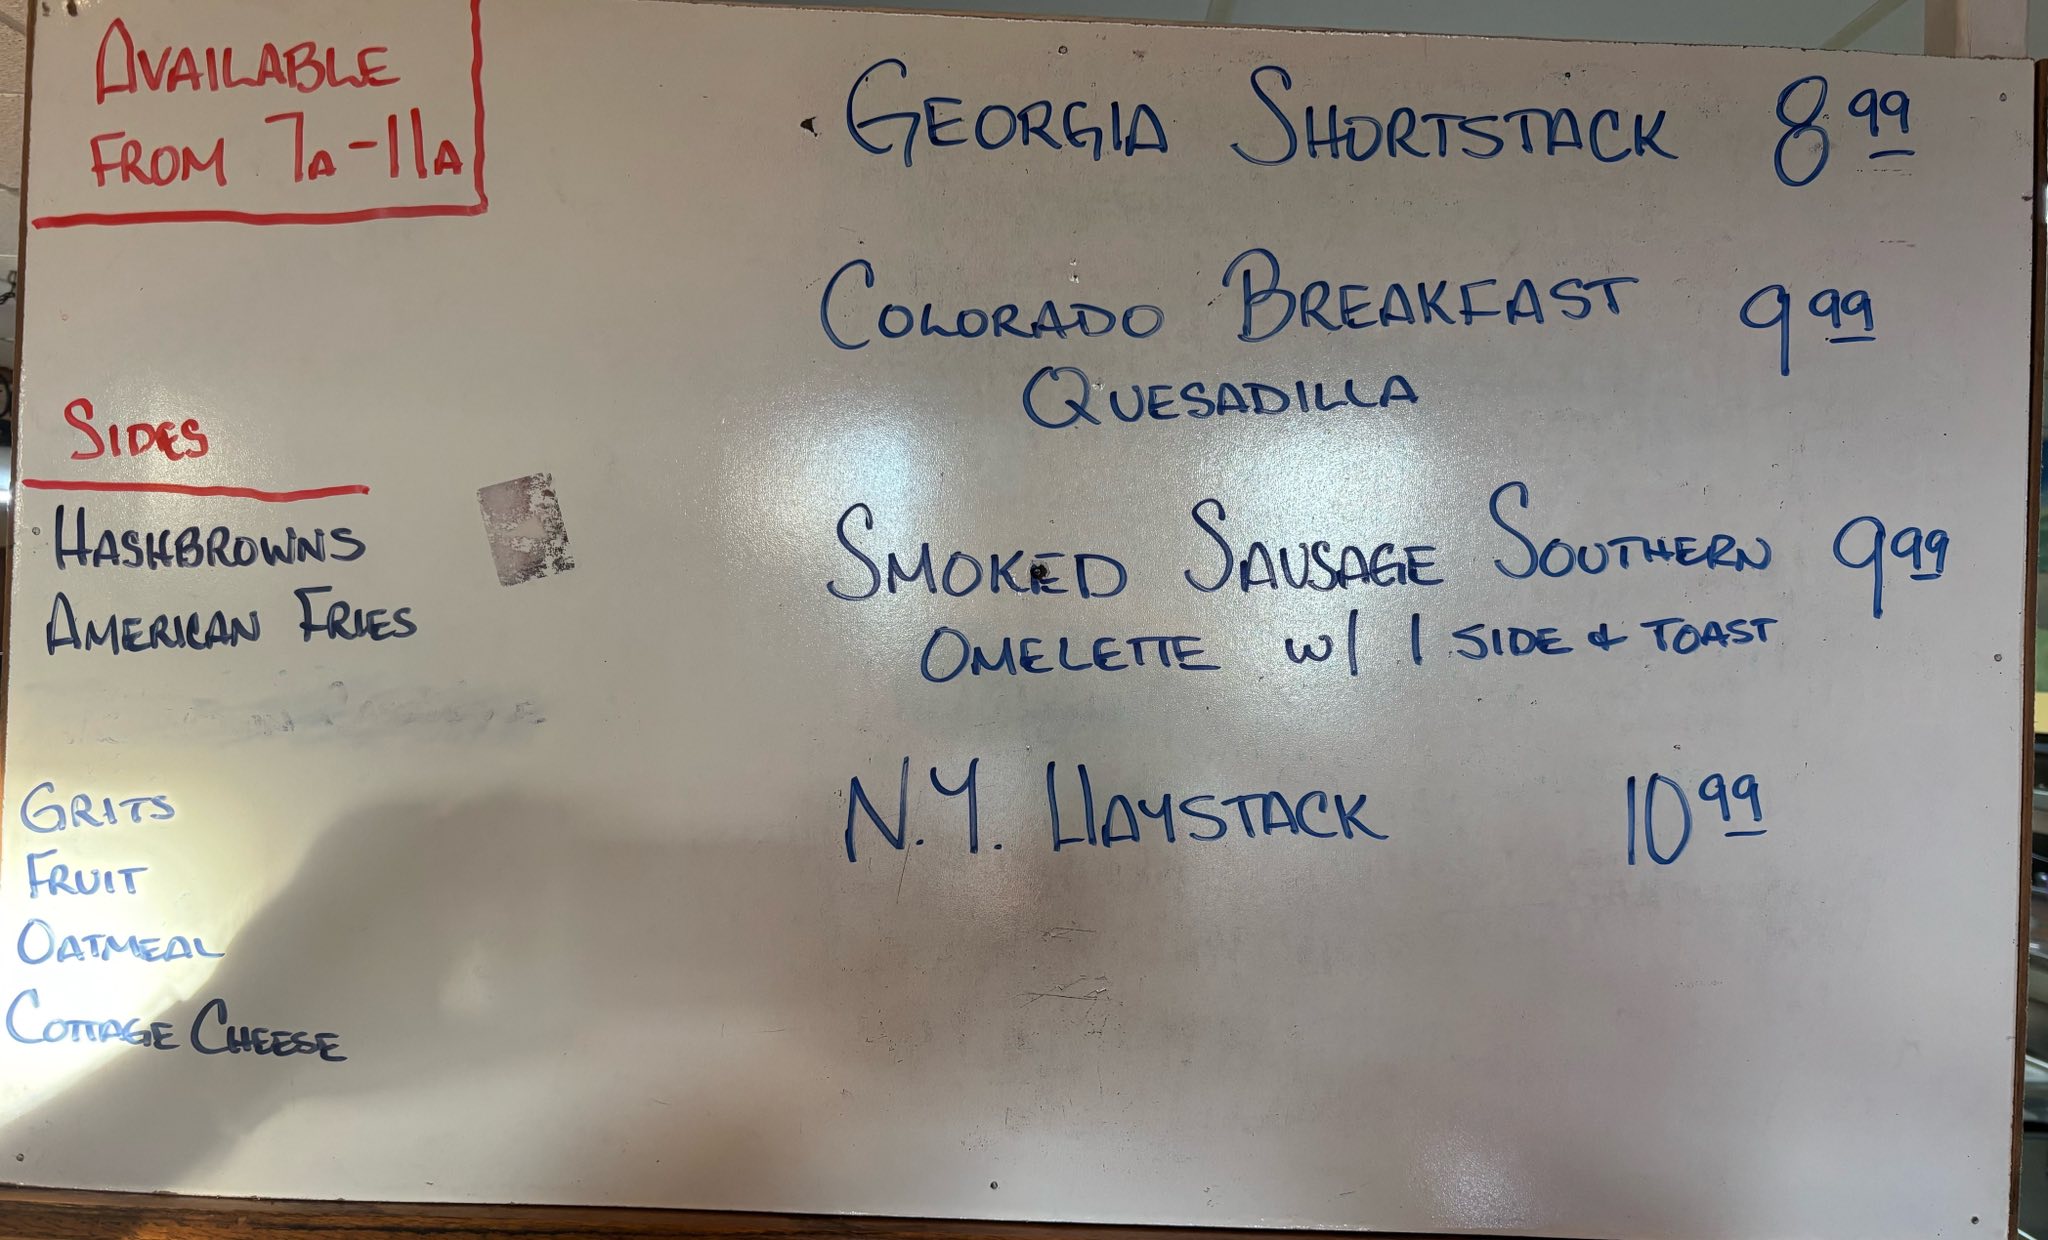 AVAILABLE
FROM 7A-11A
SIDES
HASHBROWNS
AMERICAN FRIES
GRITS
FRUIT
OATMEAL
COTTAGE CHEESE
GEORGIA SHORTSTACK 8 99
COLORADO BREAKFAST 9 99
QUESADILLA
SMOKED SAUSAGE SOUTHERN 9 99
OMELETTE W/ 1 SIDE & TOAST
N.Y. HAYSTACK 10 99